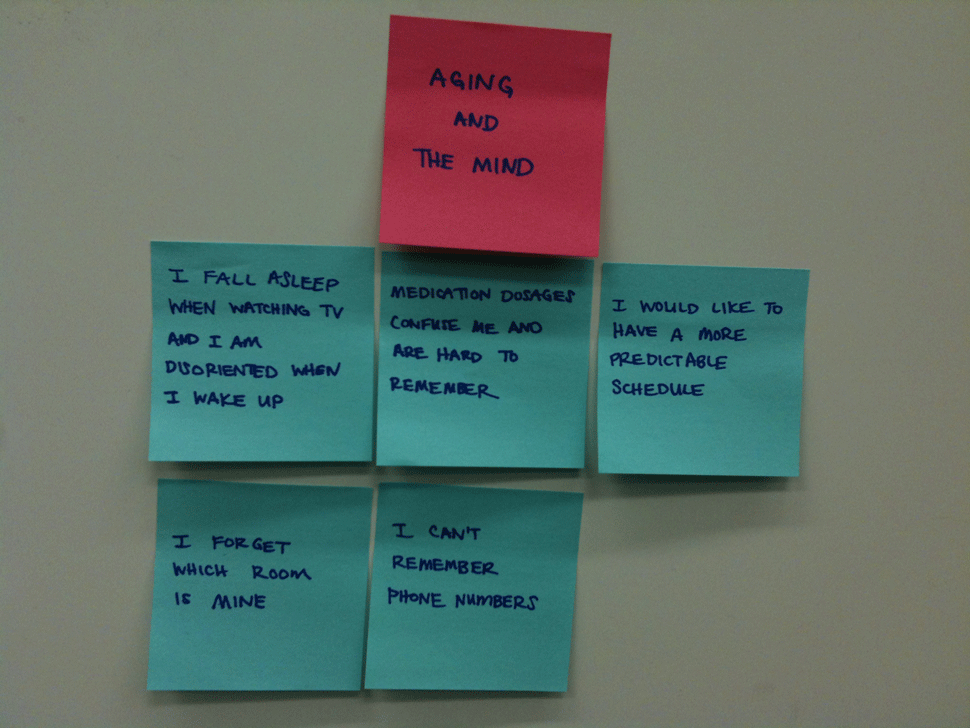 AGING
AND
THE MIND
I FALL ASLEEP
WHEN WATCHING TV
AND I AM
DISORIENTED WHEN
I WAKE UP
MEDICATION DOSAGES
CONFUSE ME AND
ARE HARD TO
REMEMBER
I WOULD LIKE TO
HAVE A MORE
PREDICTABLE
SCHEDULE
I FORGET
WHICH ROOM
IS MINE
I CAN'T
REMEMBER
PHONE NUMBERS